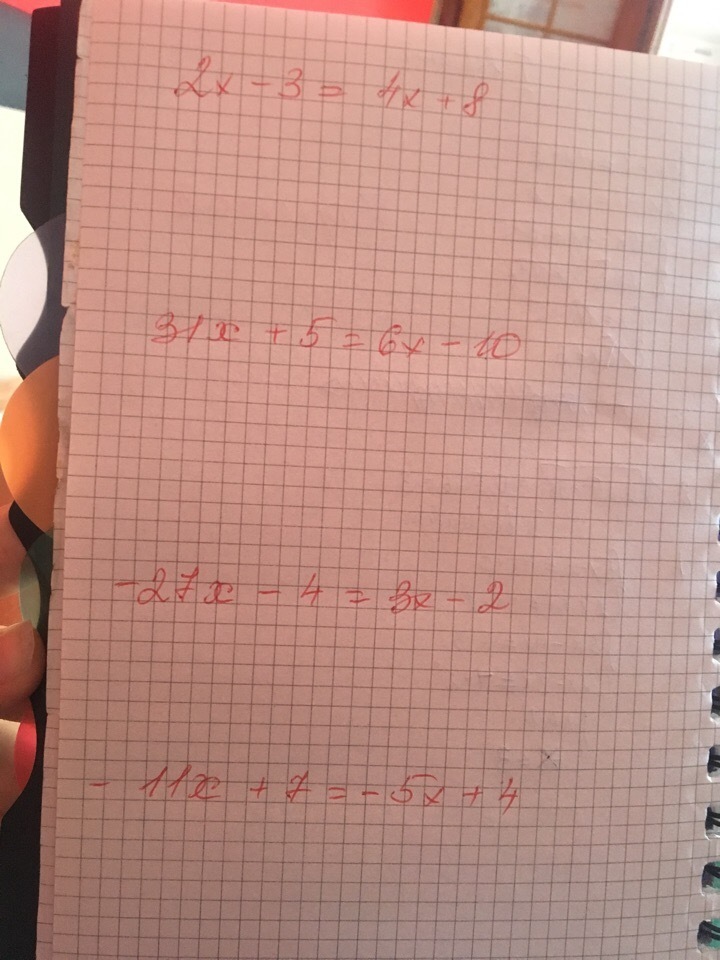 2x - 3 = 4x + 8
31x + 5 = 6x - 10
-27x - 4 = 3x - 2
- 11x + 7 = - 5x + 4